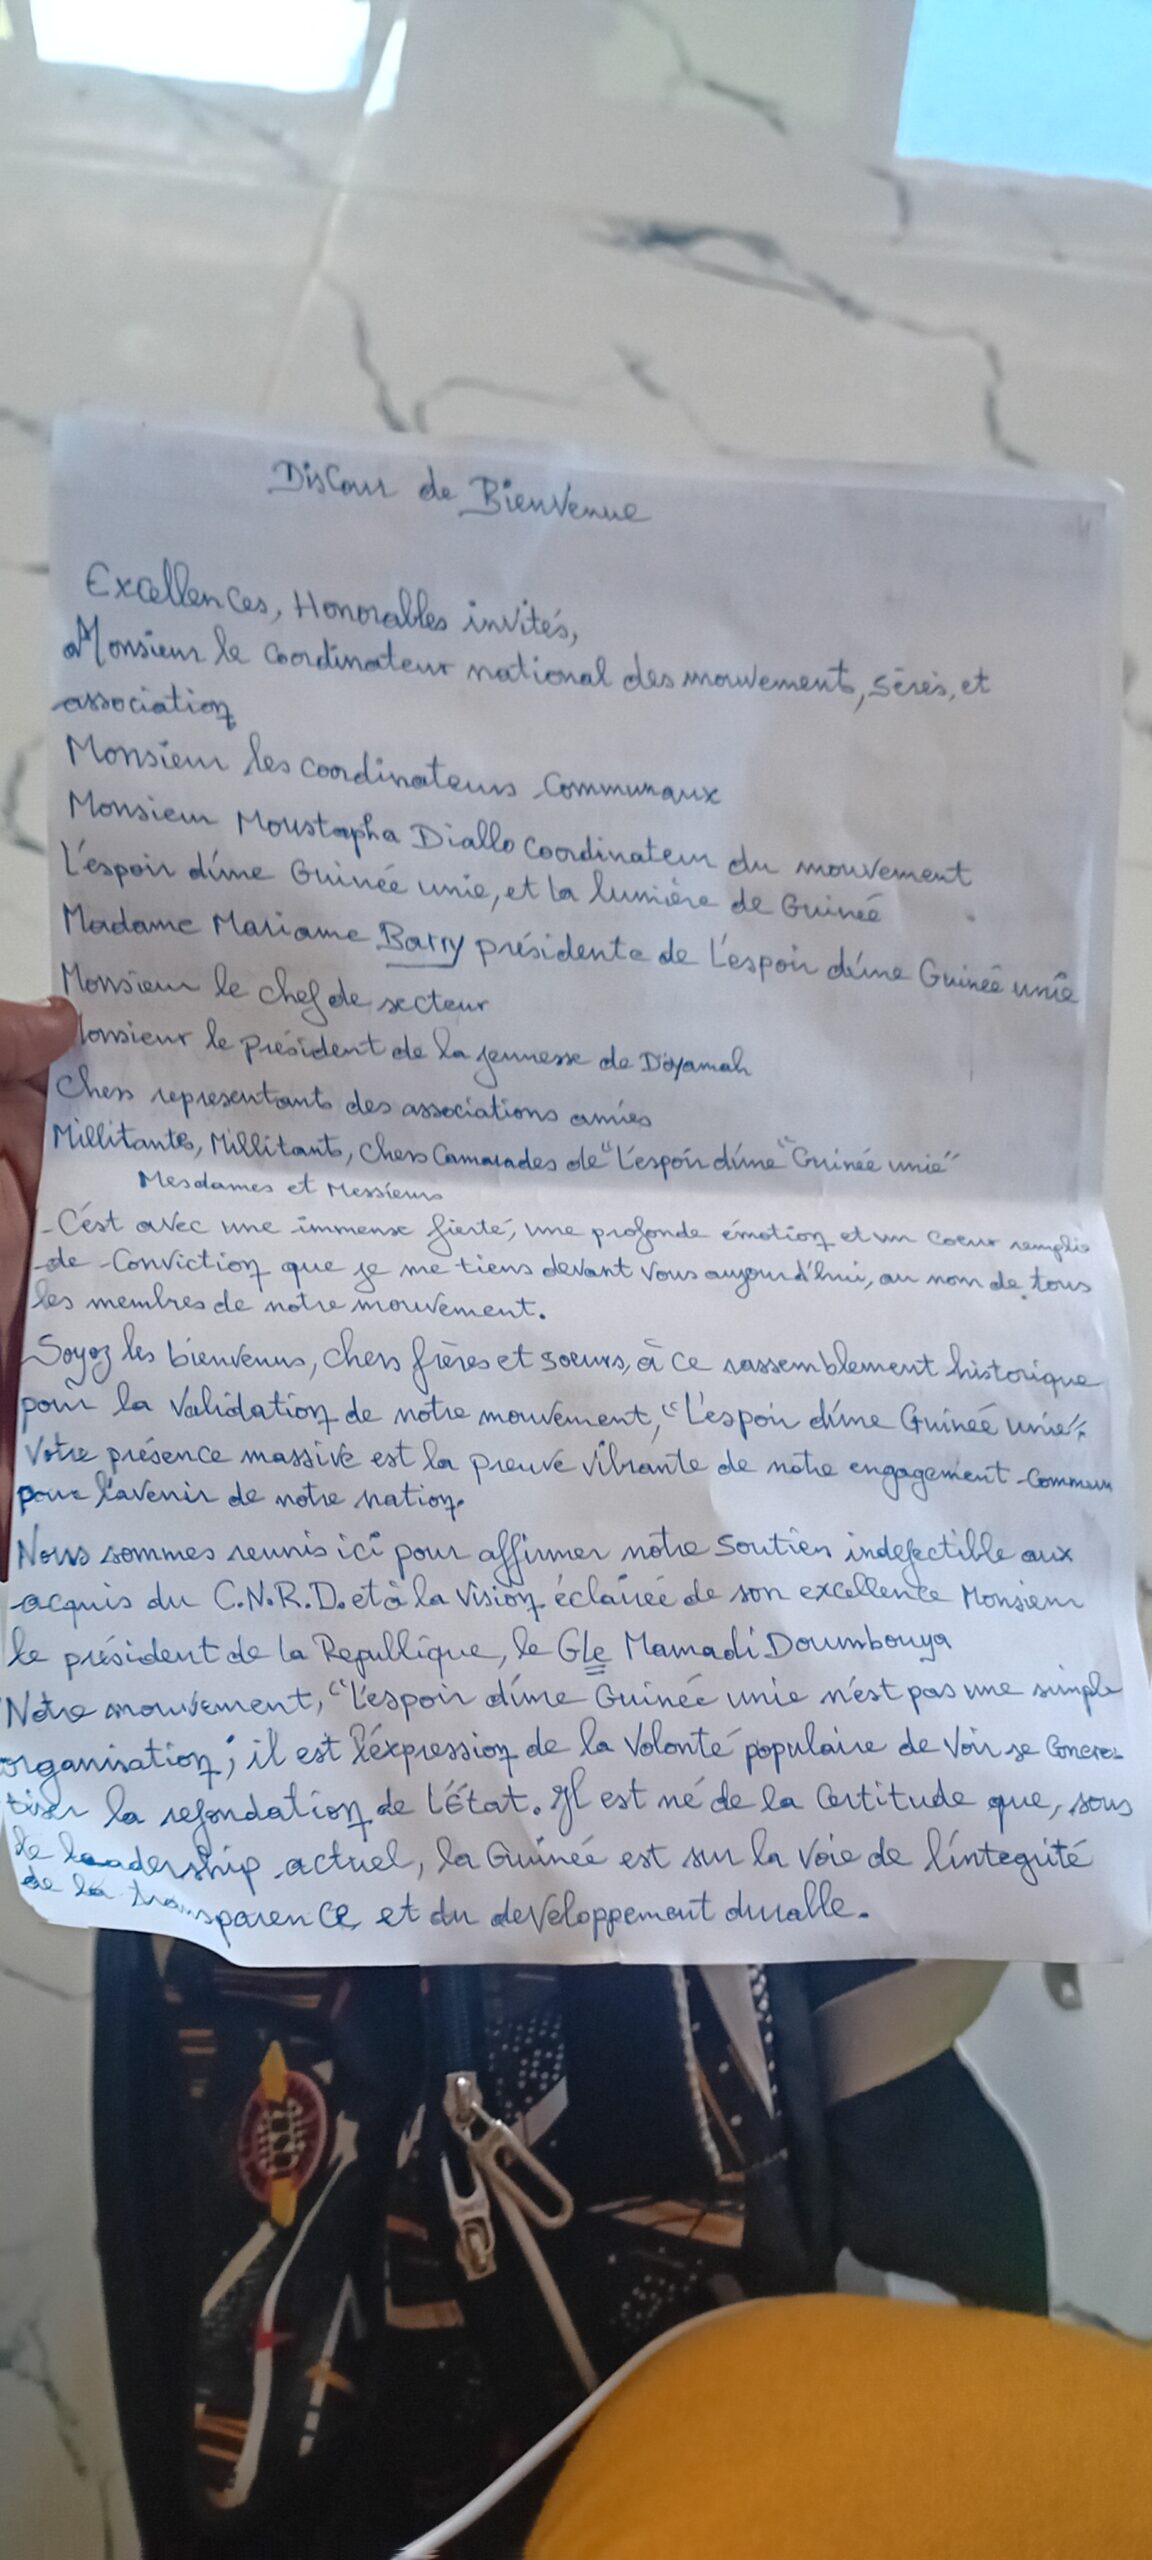 Discour de Bienvenue
Excellences, Honorables invités,
Monsieur le coordinateur national des mouvement, sérés, et
association
Monsieur les coordinateurs communaux
Monsieur Moustapha Diallo coordinateur du mouvement
L'espoir d'une Guinée unie, et la lumière de Guinée
Madame Mariame Barry présidente de L'espoir d'une Guinée unie
Monsieur le chef de secteur
Monsieur le président de la jeunesse de Dőyamah
Chers representants des associations amies
Millitantes, Millitants, chers Camarades de "L'espoir d'une" Guinée unie"
Mesdames et Messieurs
C'est avec une immense fierté, une profonde émotion et un coeur remplie
de Conviction que je me tiens devant vous aujourd'hui, au nom de tous
les membres de notre mouvement.
Soyez les bienvenus, chers frères et soeurs, à ce rassemblement historique
pour la validation de notre mouvement, "L'espoir d'une Guinée unie".
Votre présence massive est la preuve vibrante de notre engagement commun
pour l'avenir de notre nation.
Nous sommes reunis ici pour affirmer notre soutien indefectible aux
acquis du C.N.R.D. et à la vision éclairée de son excellence Monsieur
le président de la Republique, le Gle Mamadi Doumbouya
Notre mouvement, "L'espoir d'une Guinée unie n'est pas une simple
organisation; il est l'éxpression de la Volonté populaire de voir se Concre-
tiser la refondation de L'État. Il est né de la Certitude que, sous
le leadership actuel, la Guinée est sur la voie de l'intégrité
de la transparence et du developpement duralle.